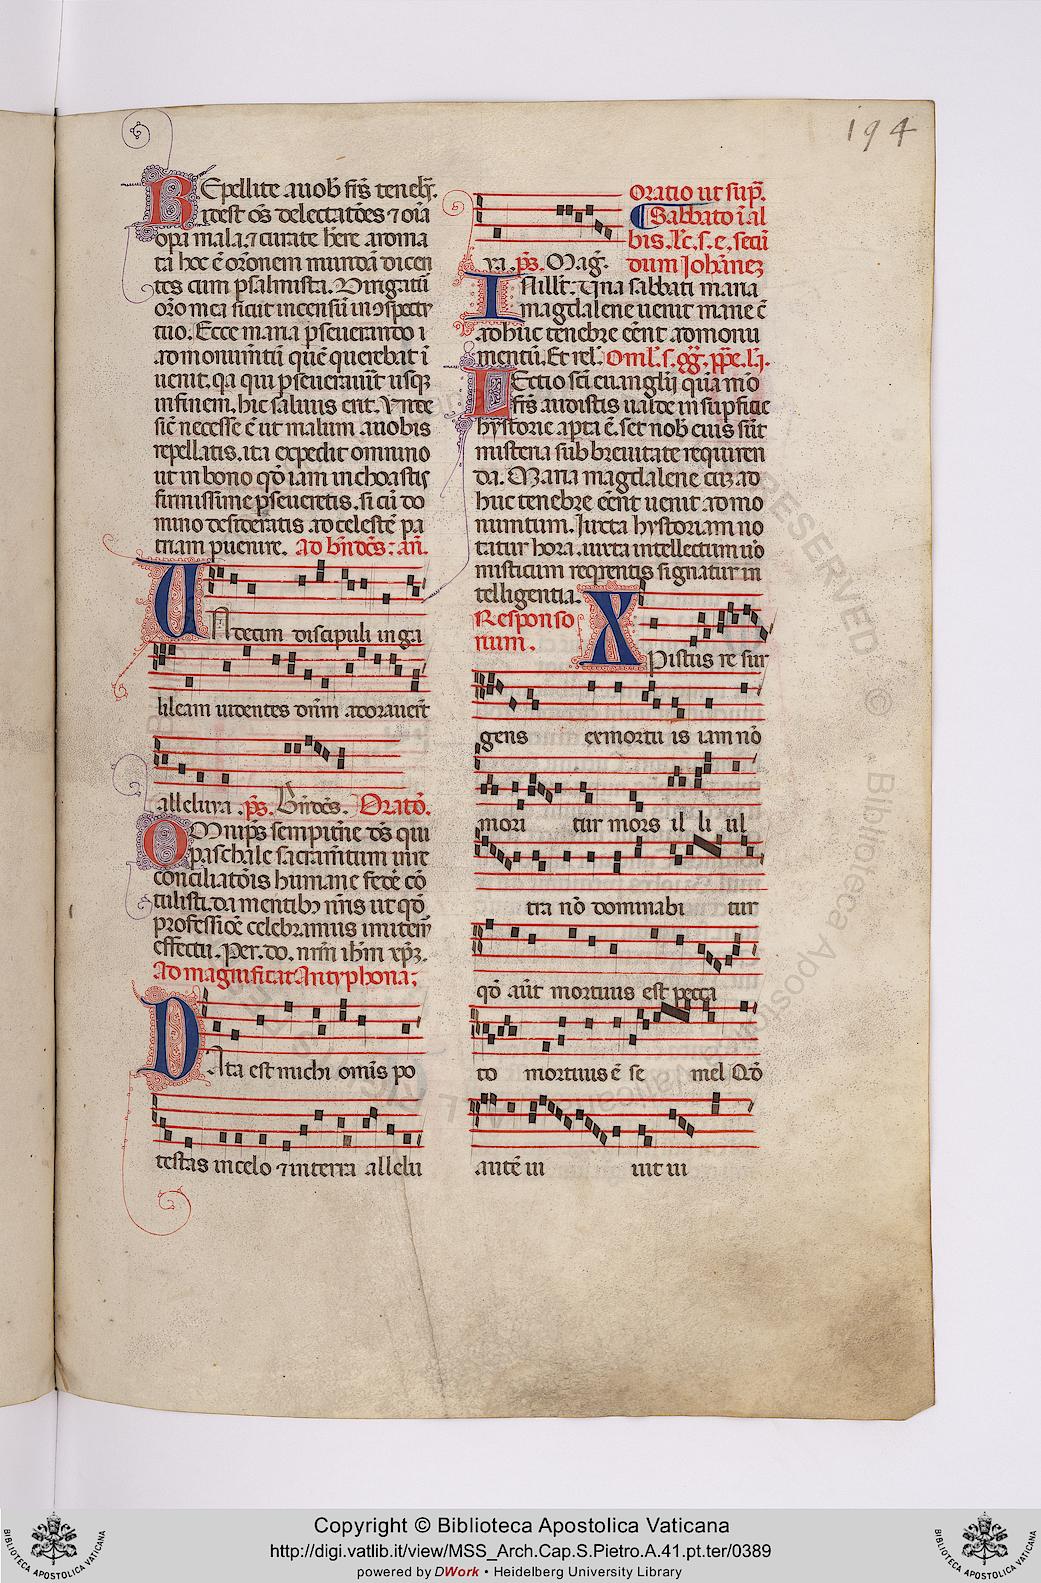 194
REpellite a uob̄ fr̄s teneb̄r.
idest oēs delectatōes ⁊ oīa
opa mala. ⁊ curate h̄ere aroma
ta hoc ē oŕonem mundā dicen
tes cum psalmista. Dirigatur
oŕo mea sicut incensū in ↄspectu
tuo. Ecce maria pseuerando i
ad monumētū quē querebat ī
uenit. qa qui pseuerauīt usqꝫ
in finem. hic saluus erit. Unde
sic necesse ē ut malum a uobis
repellatis. ita expedit omnino
ut in bono qd̄ iam inchoastis
firmissime pseueretis. si cū do
mino desideratis ad celestē pa
triam puenire. Ad bn̄dc̄s: an̄.
UNdecim discipuli in ga
lileam uidentes dn̄m adorauer̄t
alleluya. ps̄. Bn̄dc̄s. Oratō.
OMnip̄s sempitn̄e ds̄ qui
paschale sacram̄tum in
conciliatōis humane federe cō
tulisti. da mentibꝫ nr̄is ut qd̄
professiōe celebramus imitem̄
effectu. Per. do. nr̄m ih̄m xp̄ꝫ.
Ad magnificat Antyphona:
DAta est michi omīs po
testas in celo ⁊ in terra allelu
ya. ps̄. Mag̅.
Oratio ut sup̄.
Sabbato ī al
bis. Lc̄. s. e. secū
dum Johānez
IN illt̄. Una sabbati maria
magdalene uenit mane cū̄
adhuc tenebre eēnt ad monu
mentū. Et rel̄. Omł. s. gg̅. ppe. l'i.
LEctio sc̄i euanglij quā mō
fr̄s audistis ualde in supficie
hystorie apta ē. set nob̄ eius sūt
misteria sub breuitate requiren
da. Maria magdalene cuꝫ ad
huc tenebre eēnt uenit ad mo
numtum. Iuxta hystoriam no
tatur hora. iuxta intellectum uō
misticum reqrentis signatur in
telligentia.
Responso
rium.
XPistus re sur
gens ex mortu is iam nō
mori tur mors il li ul
tra nō dominabi tur
qd̄ aūt mortuus est pecca
to mortuus ē se mel Qd̄
autē ui uit ui
Copyright © Biblioteca Apostolica Vaticana
http://digi.vatlib.it/view/MSS_Arch.Cap.S.Pietro.A.41.pt.ter/0389
powered by DWork • Heidelberg University Library
BIBLIOTECA APOSTOLICA VATICANA
BIBLIOTECA APOSTOLICA VATICANA